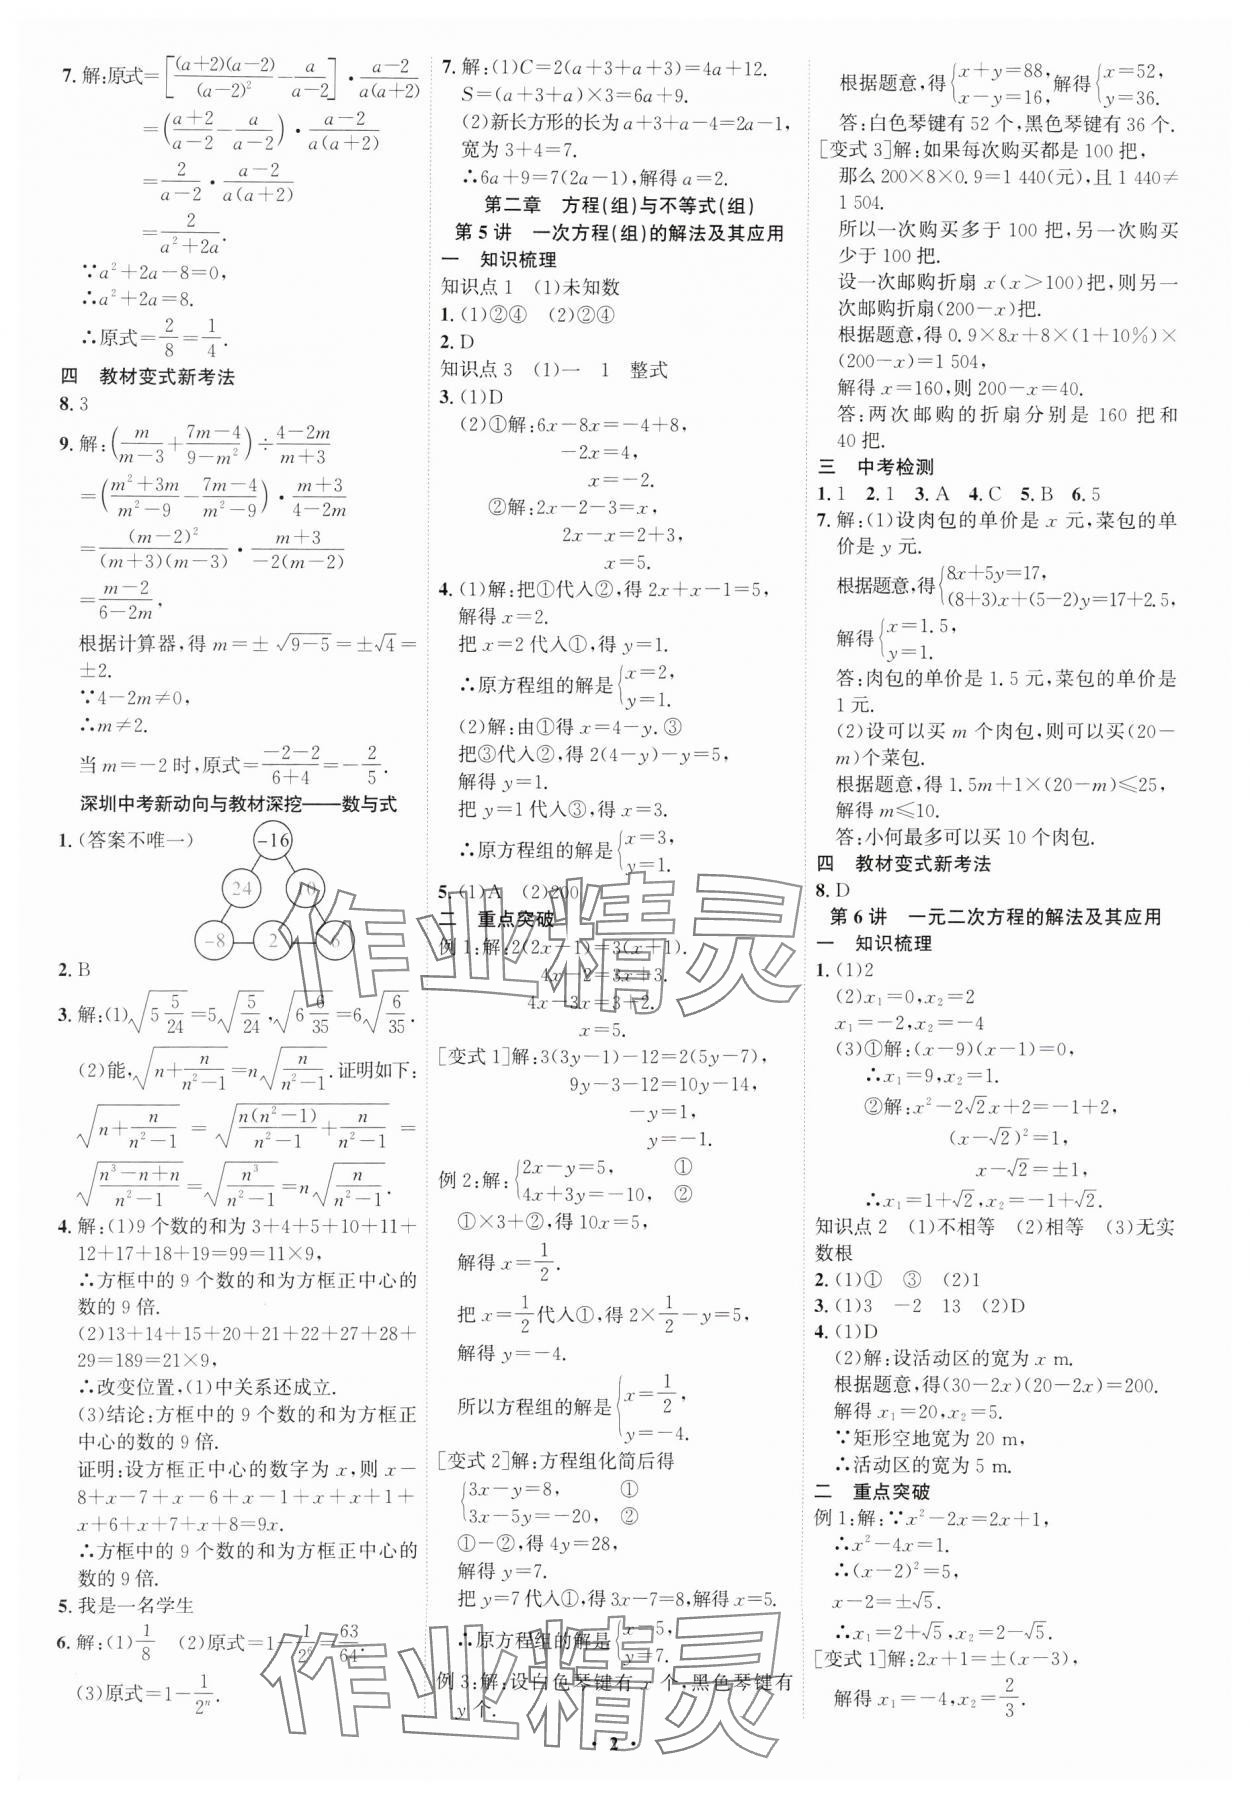 7. 解:原式=[(a+2)(a-2)/(a-2)²-a/(a-2)]·(a-2)/a(a+2)
=((a+2)/(a-2)-a/(a-2))·(a-2)/a(a+2)
=2/(a-2)·(a-2)/a(a+2)
=2/(a²+2a).
∵a²+2a-8=0,
∴a²+2a=8.
∴原式=2/8=1/4.
四 教材变式新考法
8. 3
9. 解:(m/(m-3)+(7m-4)/(9-m²))÷(4-2m)/(m+3)
=((m²+3m)/(m²-9)-(7m-4)/(m²-9))·(m+3)/(4-2m)
=(m-2)²/(m+3)(m-3)·(m+3)/-2(m-2)
=(m-2)/(6-2m),
根据计算器,得 m=±√(9-5)=±√4=
±2.
∵4-2m≠0,
∴m≠2.
当 m=-2 时,原式=(-2-2)/(6+4)=-2/5.
深圳中考新动向与教材深挖——数与式
1. (答案不唯一)
-16
24 10
-8 2 6
2. B
3. 解:(1)√(5 5/24)=5√(5/24),√(6 6/35)=6√(6/35).
(2)能,√(n+n/(n²-1))=n√(n/(n²-1)).证明如下:
√(n+n/(n²-1))=√(n(n²-1)/(n²-1)+n/(n²-1))=
√((n³-n+n)/(n²-1))=√(n³/(n²-1))=n√(n/(n²-1)).
4. 解:(1)9 个数的和为 3+4+5+10+11+
12+17+18+19=99=11×9,
∴方框中的 9 个数的和为方框正中心的
数的 9 倍.
(2)13+14+15+20+21+22+27+28+
29=189=21×9,
∴改变位置,(1)中关系还成立.
(3)结论:方框中的 9 个数的和为方框正
中心的数的 9 倍.
证明:设方框正中心的数字为 x,则 x-
8+x-7+x-6+x-1+x+x+1+
x+6+x+7+x+8=9x.
∴方框中的 9 个数的和为方框正中心的
数的 9 倍.
5. 我是一名学生
6. 解:(1)1/8 (2)原式=1-1/2⁶=63/64.
(3)原式=1-1/2ⁿ.
7. 解:(1)C=2(a+3+a+3)=4a+12.
S=(a+3+a)×3=6a+9.
(2)新长方形的长为 a+3+a-4=2a-1,
宽为 3+4=7.
∴6a+9=7(2a-1),解得 a=2.
第二章 方程(组)与不等式(组)
第 5 讲 一次方程(组)的解法及其应用
一 知识梳理
知识点 1 (1)未知数
1. (1)②④ (2)②④
2. D
知识点 3 (1)一 1 整式
3. (1)D
(2)①解:6x-8x=-4+8,
-2x=4,
x=-2.
②解:2x-2-3=x,
2x-x=2+3,
x=5.
4. (1)解:把①代入②,得 2x+x-1=5,
解得 x=2.
把 x=2 代入①,得 y=1.
∴原方程组的解是{x=2, y=1.
(2)解:由①得 x=4-y.③
把③代入②,得 2(4-y)-y=5,
解得 y=1.
把 y=1 代入③,得 x=3.
∴原方程组的解是{x=3, y=1.
5. (1)A (2)200
二 重点突破
例 1:解:2(2x-1)=3(x+1).
4x-2=3x+3.
4x-3x=3+2.
x=5.
[变式 1]解:3(3y-1)-12=2(5y-7),
9y-3-12=10y-14,
-y=1,
y=-1.
例 2:解:{2x-y=5, ① 4x+3y=-10, ②
①×3+②,得 10x=5,
解得 x=1/2.
把 x=1/2代入①,得 2×1/2-y=5,
解得 y=-4.
所以方程组的解是{x=1/2, y=-4.
[变式 2]解:方程组化简后得
{3x-y=8, ①
3x-5y=-20, ②
①-②,得 4y=28,
解得 y=7.
把 y=7 代入①,得 3x-7=8,解得 x=5.
∴原方程组的解是{x=5, y=7.
例 3:解:设白色琴键有 x 个,黑色琴键有
y 个.
根据题意,得{x+y=88, x-y=16,解得{x=52, y=36.
答:白色琴键有 52 个,黑色琴键有 36 个.
[变式 3]解:如果每次购买都是 100 把,
那么 200×8×0.9=1 440(元),且 1 440≠
1 504.
所以一次购买多于 100 把,另一次购买
少于 100 把.
设一次邮购折扇 x(x>100)把,则另一
次邮购折扇(200-x)把.
根据题意,得 0.9×8x+8×(1+10%)×
(200-x)=1 504,
解得 x=160,则 200-x=40.
答:两次邮购的折扇分别是 160 把和
40 把.
三 中考检测
1. 1 2. 1 3. A 4. C 5. B 6. 5
7. 解:(1)设肉包的单价是 x 元,菜包的单
价是 y 元.
根据题意,得{8x+5y=17, (8+3)x+(5-2)y=17+2.5,
解得{x=1.5, y=1.
答:肉包的单价是 1.5 元,菜包的单价是
1 元.
(2)设可以买 m 个肉包,则可以买(20-
m)个菜包.
根据题意,得 1.5m+1×(20-m)≤25,
解得 m≤10.
答:小何最多可以买 10 个肉包.
四 教材变式新考法
8. D
第 6 讲 一元二次方程的解法及其应用
一 知识梳理
1. (1)2
(2)x₁=0,x₂=2
x₁=-2,x₂=-4
(3)①解:(x-9)(x-1)=0,
∴x₁=9,x₂=1.
②解:x²-2√2x+2=-1+2,
(x-√2)²=1,
x-√2=±1,
∴x₁=1+√2,x₂=-1+√2.
知识点 2 (1)不相等 (2)相等 (3)无实
数根
2. (1)① ③ (2)1
3. (1)3 -2 13 (2)D
4. (1)D
(2)解:设活动区的宽为 x m.
根据题意,得(30-2x)(20-2x)=200.
解得 x₁=20,x₂=5.
∵矩形空地宽为 20 m,
∴活动区的宽为 5 m.
二 重点突破
例 1:解:∵x²-2x=2x+1,
∴x²-4x=1.
∴(x-2)²=5,
x-2=±√5.
∴x₁=2+√5,x₂=2-√5.
[变式 1]解:2x+1=±(x-3),
解得 x₁=-4,x₂=2/3.
· 2 ·
作业精灵
作业精灵